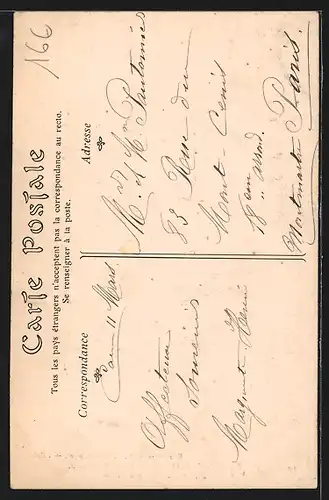 166
Carte Postale
Tous les pays étrangers n'acceptent pas la correspondance au recto.
Se renseigner à la poste.
Correspondance
11 Mars
Affectueux
Souvenirs
Marguerite
Adresse
M. et Mme
83 Rue du
Mont Cenis
18 em arrond.
Montmartre Paris.